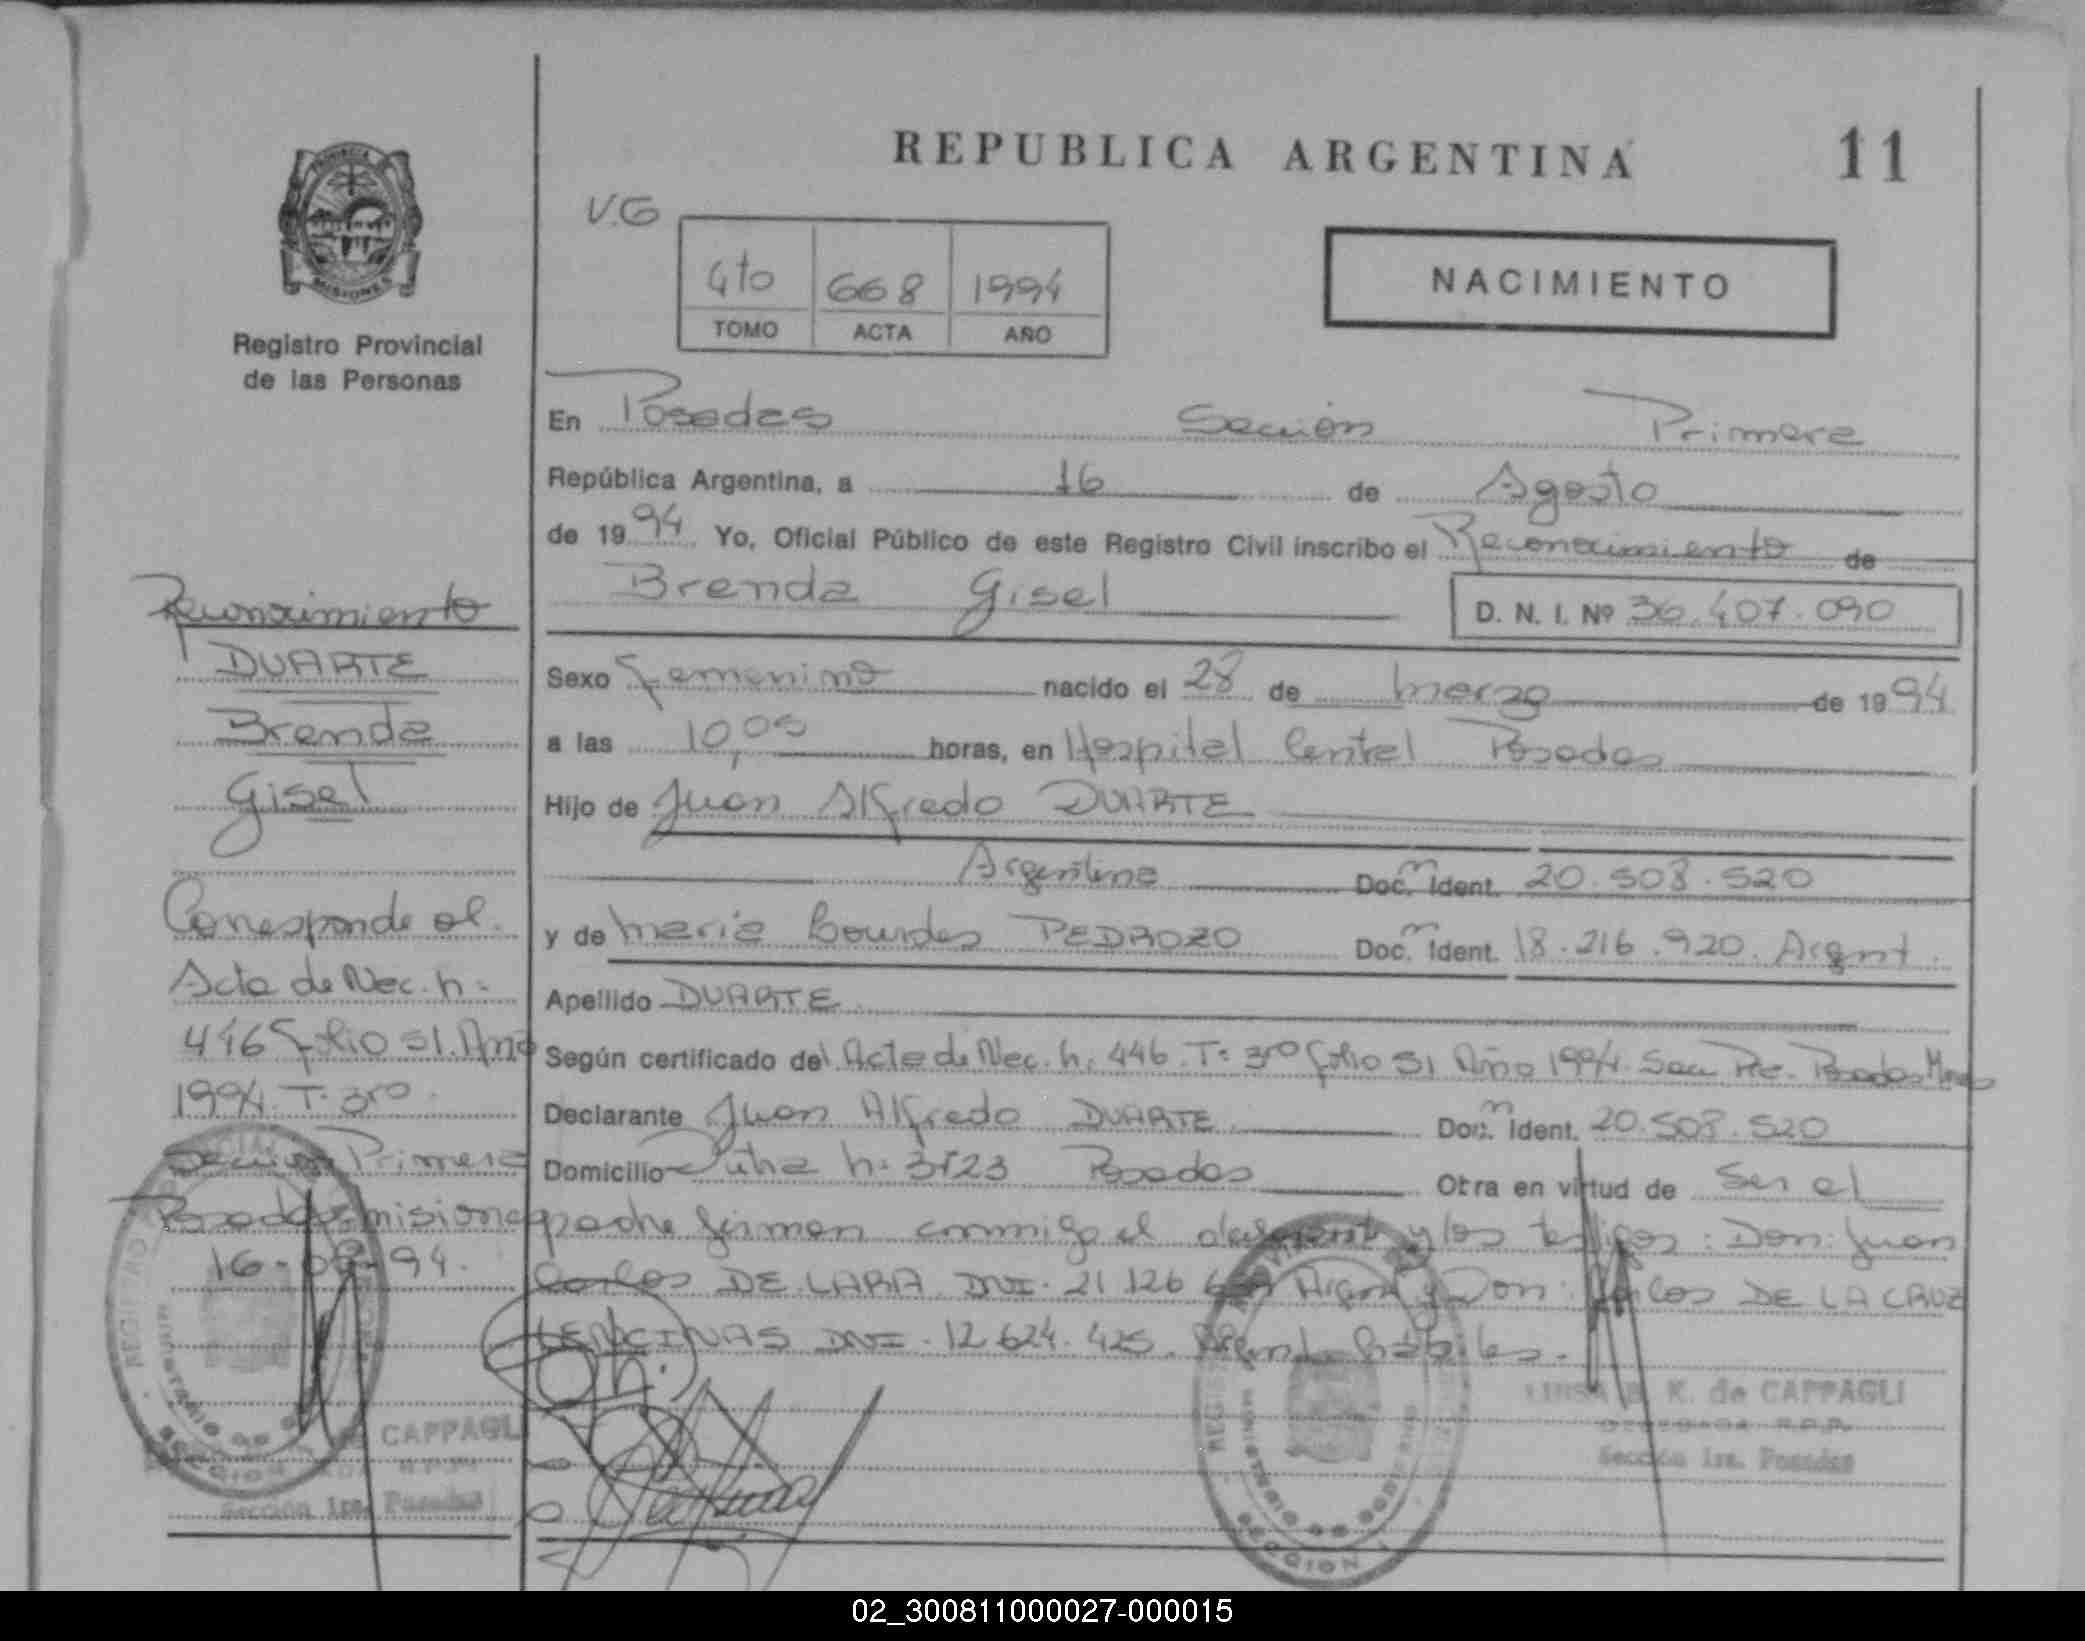 REPUBLICA ARGENTINA
11
PROVINCIA
MISIONES
Registro Provincial
de las Personas
V.G
4to 668 1994
TOMO ACTA AÑO
NACIMIENTO
En Posadas Sección Primera
República Argentina, a 16 de Agosto
de 1994 Yo, Oficial Público de este Registro Civil inscribo el Reconocimiento de
Brenda Gisel
D. N. I. Nº 36.407.090
Sexo Femenino nacido el 28 de marzo de 1994
a las 10,05 horas, en Hospital Central Posadas
Hijo de Juan Alfredo DUARTE
Argentina Doc. Ident. 20.508.520
y de María Lourdes PEDROZO Doc. Ident. 18.216.920. Argent.
Apellido DUARTE
Según certificado del Acta de Nac. n: 446. T: 3ro folio 51 Año 1994. Secc. Pre. Posadas Mnes
Declarante Juan Alfredo DUARTE Doc. Ident. 20.508.520
Domicilio n: 3123 Posadas Otra en virtud de Ser el
padre firman conmigo el declarante y los testigos: Don: Juan
Carlos DE LARA DNI. 21.126 Argent. y Don: Carlos DE LA CRUZ
LENCINAS DNI. 12.624.425. Argent. hábiles.
Reconocimiento
DUARTE
Brenda
Gisel
Corresponde al.
Acta de Nac. n:
446 folio 51. Año
1994. T: 3ro.
Sección Primera
Posadas Misiones
16-08-94.
CAPPAGLI
Sección 1ra. Posadas
LUISA B. K. de CAPPAGLI
DELEGADA R.P.P.
Sección 1ra. Posadas
SECCION 1
02_300811000027-000015